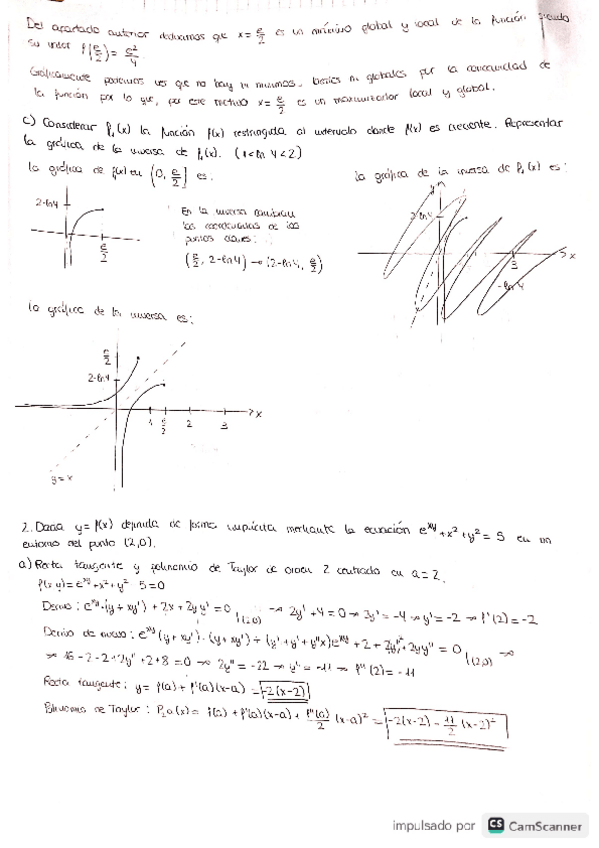 Del apartado anterior deducimos que x = e/2 es un máximo global y local de la función siendo
su valor f(e/2) = e²/4
Gráficamente podemos ver que no hay ni mínimos locales ni globales por la concavidad de
la función por lo que, por este motivo x = e/2 es un maximizador local y global.
c) Considerar f₁(x) la función f(x) restringida al intervalo donde f(x) es creciente. Representar
la gráfica de la inversa de f₁(x). (1<ln 4<2)
la gráfica de f(x) en (0, e/2] es:
la gráfica de la inversa de f₁(x) es:
2-ln4
e/2
En la inversa cambian
las coordenadas de los
puntos claves:
(e/2, 2-ln4) → (2-ln4, e/2)
y
2-ln4
3
x
-ln 4
la gráfica de la inversa es:
e/2
2-ln4
1 e/2 2 3 x
y=x
2. Dada y=f(x) definida de forma implícita mediante la ecuación e^xy + x² + y² = 5 en un
entorno del punto (2,0).
a) Recta tangente y polinomio de Taylor de orden 2 centrado en a=2.
f(x,y) = e^xy + x² + y² 5=0
Derivo: e^xy·(y + xy') + 2x + 2yy' = 0 |(2,0) → 2y' + 4 = 0 → 2y' = -4 → y' = -2 → f'(2) = -2
Derivo de nuevo: e^xy (y+xy')·(y+xy') + (y' + y' + y''x)e^xy + 2 + 2y'² + 2yy'' = 0 |(2,0) →
→ 16 - 2 - 2 + 2y'' + 2 + 8 = 0 → 2y'' = -22 → y'' = -11 → f''(2) = -11
Recta tangente: y = f(a) + f'(a)(x-a) = -2(x-2)
Polinomio de Taylor: P₂,a(x) = f(a) + f'(a)(x-a) + f''(a)/2 (x-a)² = -2(x-2) - 11/2 (x-2)²
impulsado por CS CamScanner